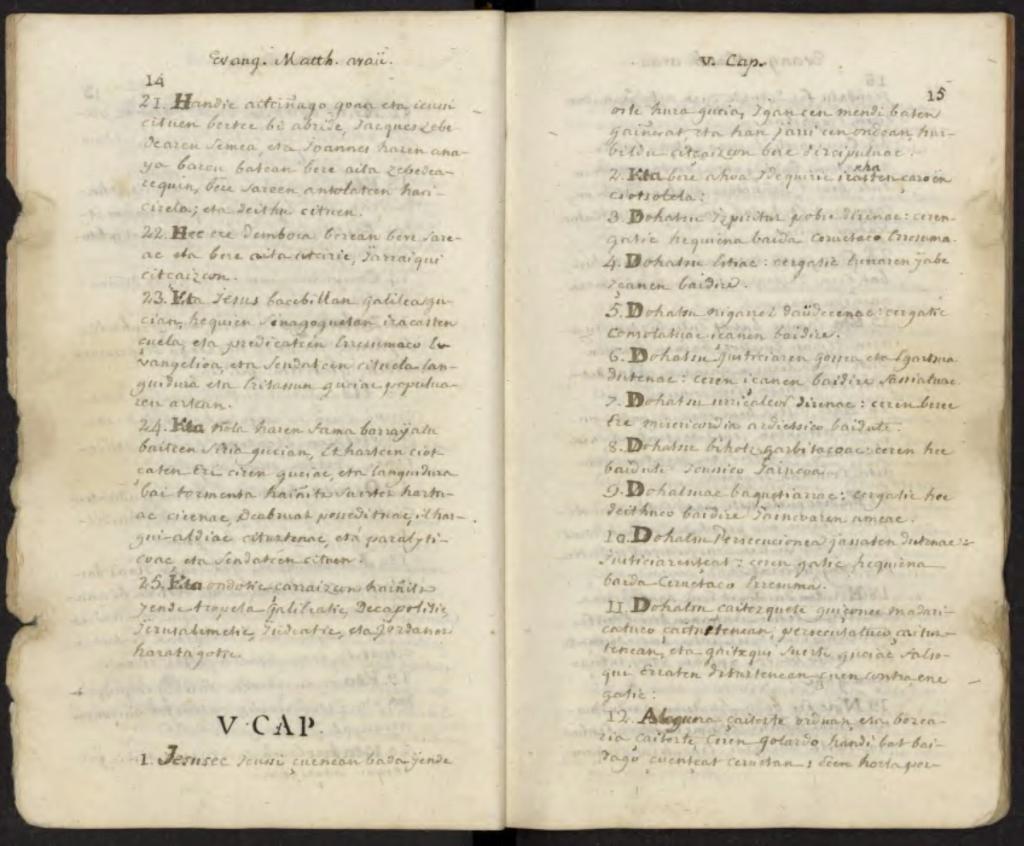 Evang. Matth. araü.
14
21. Handic aitciñago goan eta icussi
cituen bertce bi abride, Jacques Zebe
dearen semea, eta Joannes haren ana-
ya barcu batean bere aita Zebedea-
requin, bere sareen antolatcen hari
cirela; eta deithu cituen.
22. Hec ere demboca berean bere sare-
ac eta bere aita utciric, Jarraiqui
citcaizcon.
23. Eta Jesus bacebillan Galilea gu-
cian, hequien Sinagoguetan iracasten
cuela, eta predicatcen Erresumaco E-
vangelioa, eta sendatcen cituela lan-
guidura eta Eritassun guciac populua-
ren artean.
24. Eta hola haren fama barraÿatu
baitcen Siria gucian, Et hartcen ciot
caten Eri ciren guciac, eta languidura
bai tormenta hainitz suertez hartu-
ac cirenac, Deabruaz posseditnac, ilhar-
gui-aldiac cituztenac, eta paralyti-
coac eta sendatcen cituen.
25. Eta ondotic carraizcon hainitz
yende tropela Galileatic, Decapolistic,
Jerusalemetic, Judeatic, eta Jordanaz
haratagotic.
V. CAP.
1. Jesusec icussi çuenean bada yende
V. Cap.
15
oste hura gucia, Igan cen mendi baten
gaiñerat eta han jarri cen ondoan, hur-
bildu citcaizcon bere discipuluac.
2. Eta bere ahoa idequiric iracasten çaroën
ciotsotela:
3. Dohatsu Izpirituz pobre direnac: ceren-
gatic hequiena baida Ceruetaco Erresuma.
4. Dohatsu Eztiac: cergatic Lurraren jabe
içanen baidire.
5. Dohatsu nigarrez daüdecenac: cergatic
consolatuac içanen baidire.
6. Dohatsu Justiciaren gossea eta Egartsua
dutenac: ceren içanen baidire sassiatuac.
7. Dohatsu urricalcor direnac: ceren berec
Ere misericordia ardietsico baidute.
8. Dohatsu bihotz garbitacoac ceren hec
baidute Icussico Jaincoa.
9. Dohatsuac baquetiarrac: cergatic hec
deithuco baidire Jaincoaren umeac.
10. Dohatsu Persecucionea jassaten dutenac
Justiciarentçat: ceren gatic hequiena
baida Ceruetaco Erresuma.
11. Dohatsu çaitezquete guiçonec madari-
catuco çaituztenean, persecutatuco çaituz-
tenean, eta gaitzqui suerte guciac falso-
qui Erraten dituztenean çuen contra ene
gatic:
12. Aleguera çaitezte orduan, eta bozca-
ria çaitezte Ceren golardo handi bat bai-
dago çuentçat ceruetan: Ecen horla per-